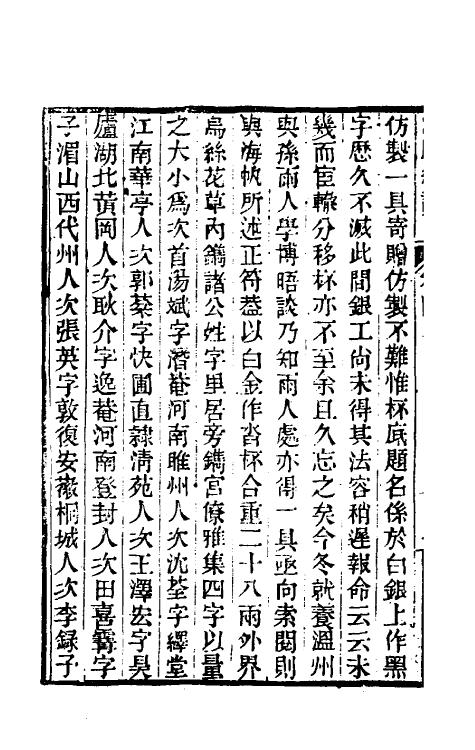 仿製一具寄贈仿製不難惟杯底題名係於白銀上作黑
字歷久不滅此間銀工尚未得其法容稍遲報命云云未
幾而宦轍分移杯亦不至余且久忘之矣今冬就養溫州
與孫雨人學博晤談乃知雨人處亦得一具亟向索閱則
與海帆所述正符葢以白金作沓杯合重二十八兩外界
烏絲花草內鐫諸公姓字里居旁鐫宮僚雅集四字以量
之大小爲次首湯斌字潛菴河南睢州人次沈荃字繹堂
江南華亭人次郭棻字快圃直隸淸苑人次王澤宏字昊
廬湖北黃岡人次耿介字逸菴河南登封人次田喜霽字
子湄山西代州人次張英字敦復安徽桐城人次李録子